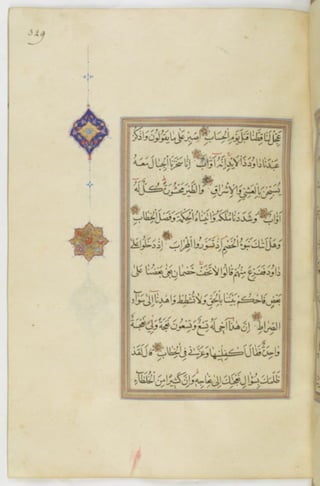 329
عَجِّل لَنَا قِطَّنَا قَبْلَ يَوْمِ الْحِسَابِ اصْبِرْ عَلَى مَا يَقُولُونَ وَاذْكُرْ
عَبْدَنَا دَاوُدَ ذَا الْاَيْدِ اِنَّهُ اَوَّابٌ اِنَّا سَخَّرْنَا الْجِبَالَ مَعَهُ
يُسَبِّحْنَ بِالْعَشِيِّ وَالْاِشْرَاقِ وَالطَّيْرَ مَحْشُورَةً كُلٌّ لَهُ
اَوَّابٌ وَشَدَدْنَا مُلْكَهُ وَاٰتَيْنَاهُ الْحِكْمَةَ وَفَصْلَ الْخِطَابِ
وَهَلْ اَتٰيكَ نَبَؤُا الْخَصْمِ اِذْ تَسَوَّرُوا الْمِحْرَابَ اِذْ دَخَلُوا عَلَى
دَاوُدَ فَفَزِعَ مِنْهُمْ قَالُوا لَا تَخَفْ خَصْمَانِ بَغَى بَعْضُنَا عَلَى
بَعْضٍ فَاحْكُمْ بَيْنَنَا بِالْحَقِّ وَلَا تُشْطِطْ وَاهْدِنَا اِلَى سَوَآءِ
الصِّرَاطِ اِنَّ هٰذَا اَخِي لَهُ تِسْعٌ وَتِسْعُونَ نَعْجَةً وَلِيَ نَعْجَةٌ
وَاحِدَةٌ فَقَالَ اَكْفِلْنِيهَا وَعَزَّنِي فِي الْخِطَابِ قَالَ لَقَدْ
ظَلَمَكَ بِسُؤَالِ نَعْجَتِكَ اِلَى نِعَاجِهِ وَاِنَّ كَثِيرًا مِنَ الْخُلَطَآءِ